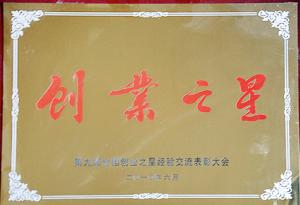 创業之星
第九届全国创业之星经验交流表彰大会
二〇一一年六月